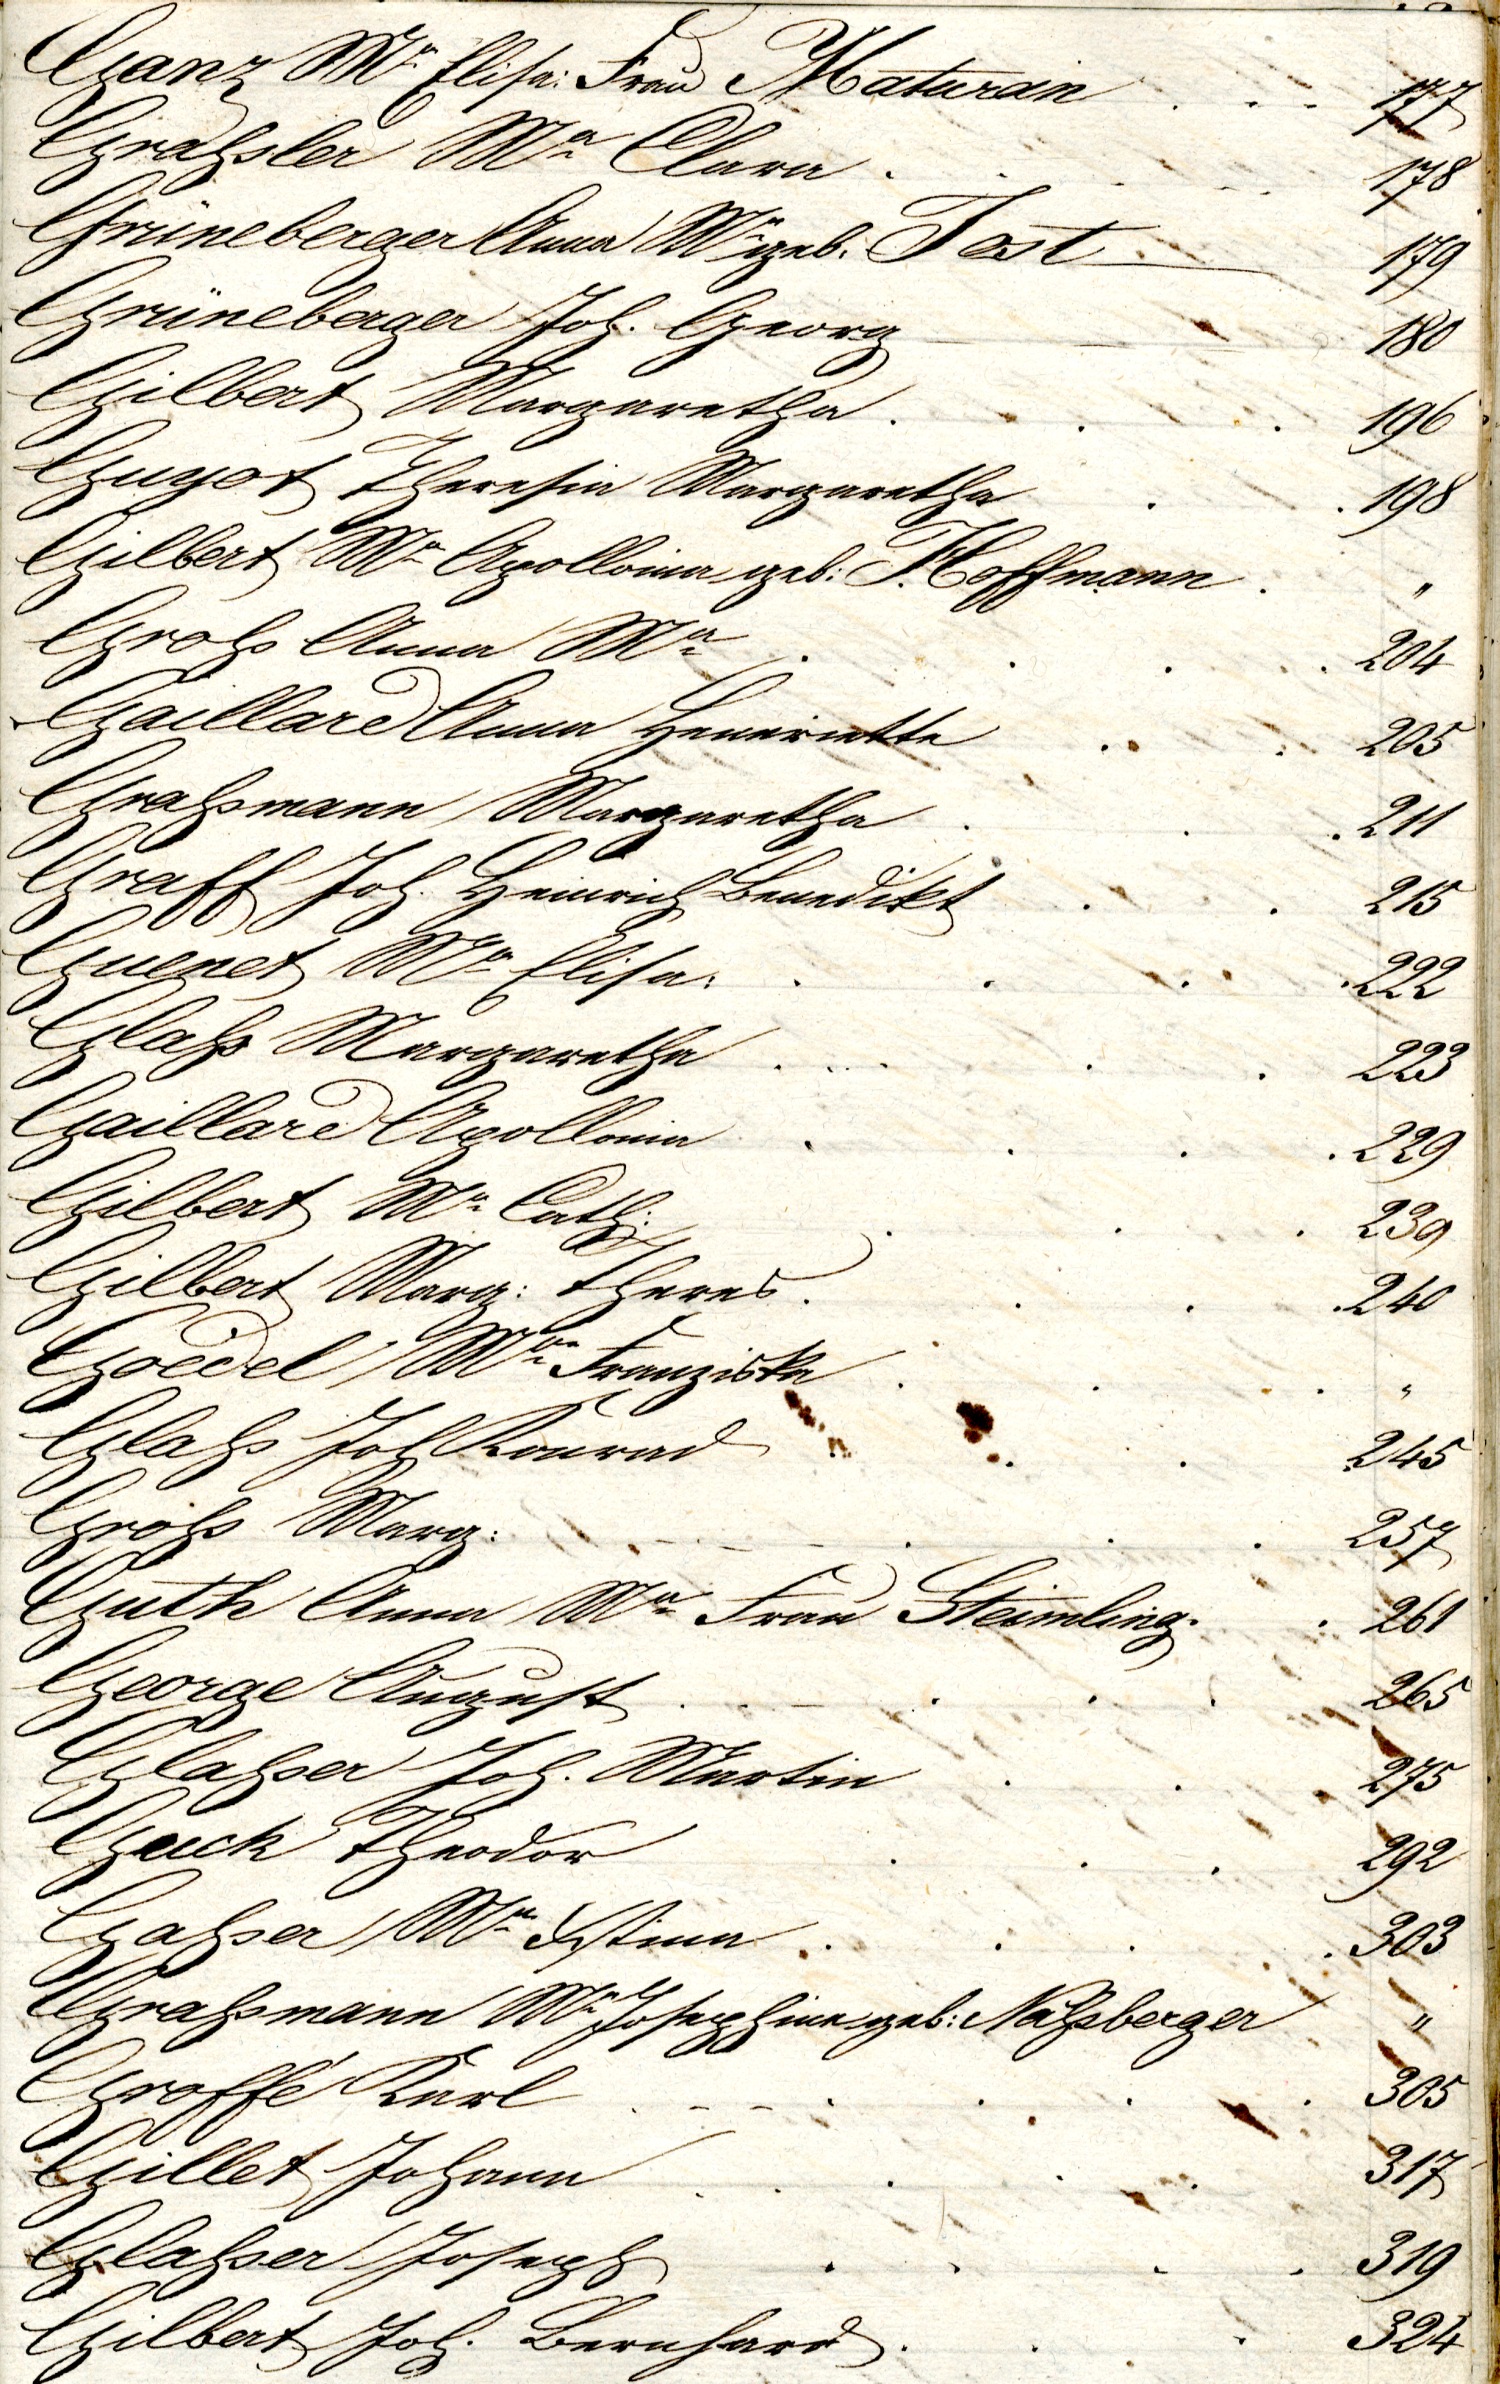 Ganz Mª Elisa: Frau Maturin . . . 177
Graßsler Mª Clara . . . . 178
Grüneberger Anna Mª geb. Jost 179
Grüneberger Joh. Georg 180
Gilbert Margaretha . . . 196
Guyot Theresia Margaretha . . 198
Gilbert Mª Apollonia geb: Hoffmann . "
Groß Anna Mª . . . . 204
Gaillard Anna Henriette . . 205
Graßmann Margaretha . . . 211
Graff Joh. Heinrich Benedikt . . 215
Guenet Mª Elisa: . . . . 222
Glaß Margaretha . . . . 223
Gaillard Apollonia . . . . 229
Gilbert Mª Cath: . . . 239
Gilbert Marg: Theres. . . . 240
Goedel Mª Franziska . . . "
Glaß Joh Konrad . . . 245
Groß Marg: . . . 257
Guth Anna Mª Frau Steimling . . 261
George August . . . . 265
Glaßer Joh. Martin . . . 275
Geick Theodor . . . 292
Gaßer Mª . . . . 303
Graßmann Mª Josephine geb: Naßberger "
Groffé Karl . . . . 305
Gillet Johann . . . . 317
Glaßer Joseph . . . . 319
Gilbert Joh. Bernhard . . . 324